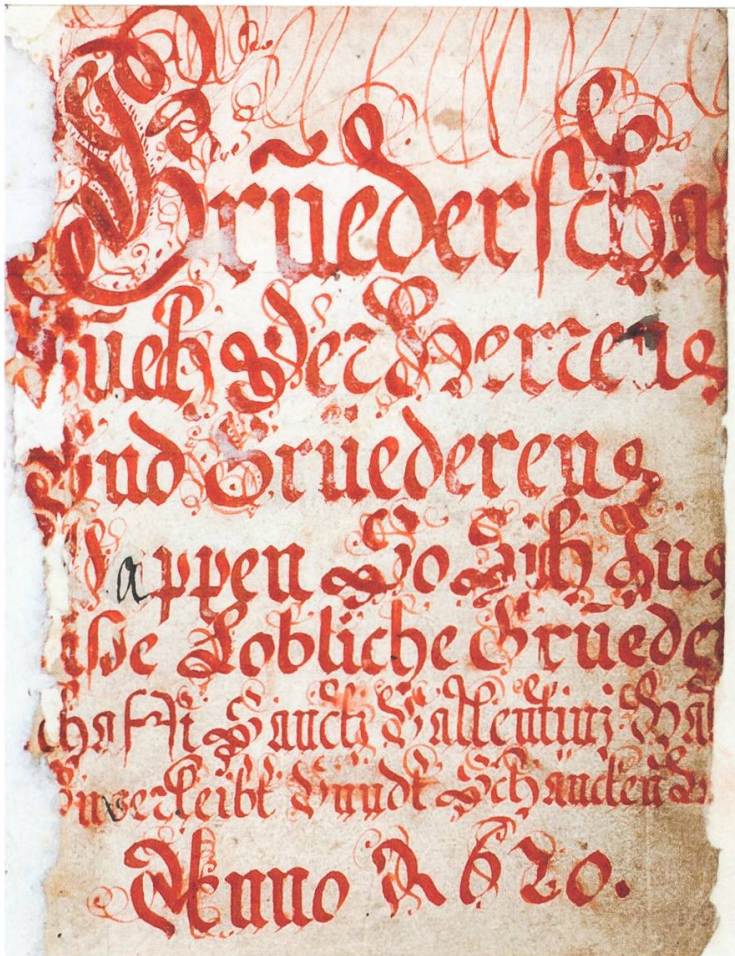 Brũederscha
Buech Der Herren
Und Brüederen
Wappen So Sich Zue
Lobliche Brũeder
schafft Sanct Vallentinj
Einverleibt Unndt Schancken
Anno 1620.